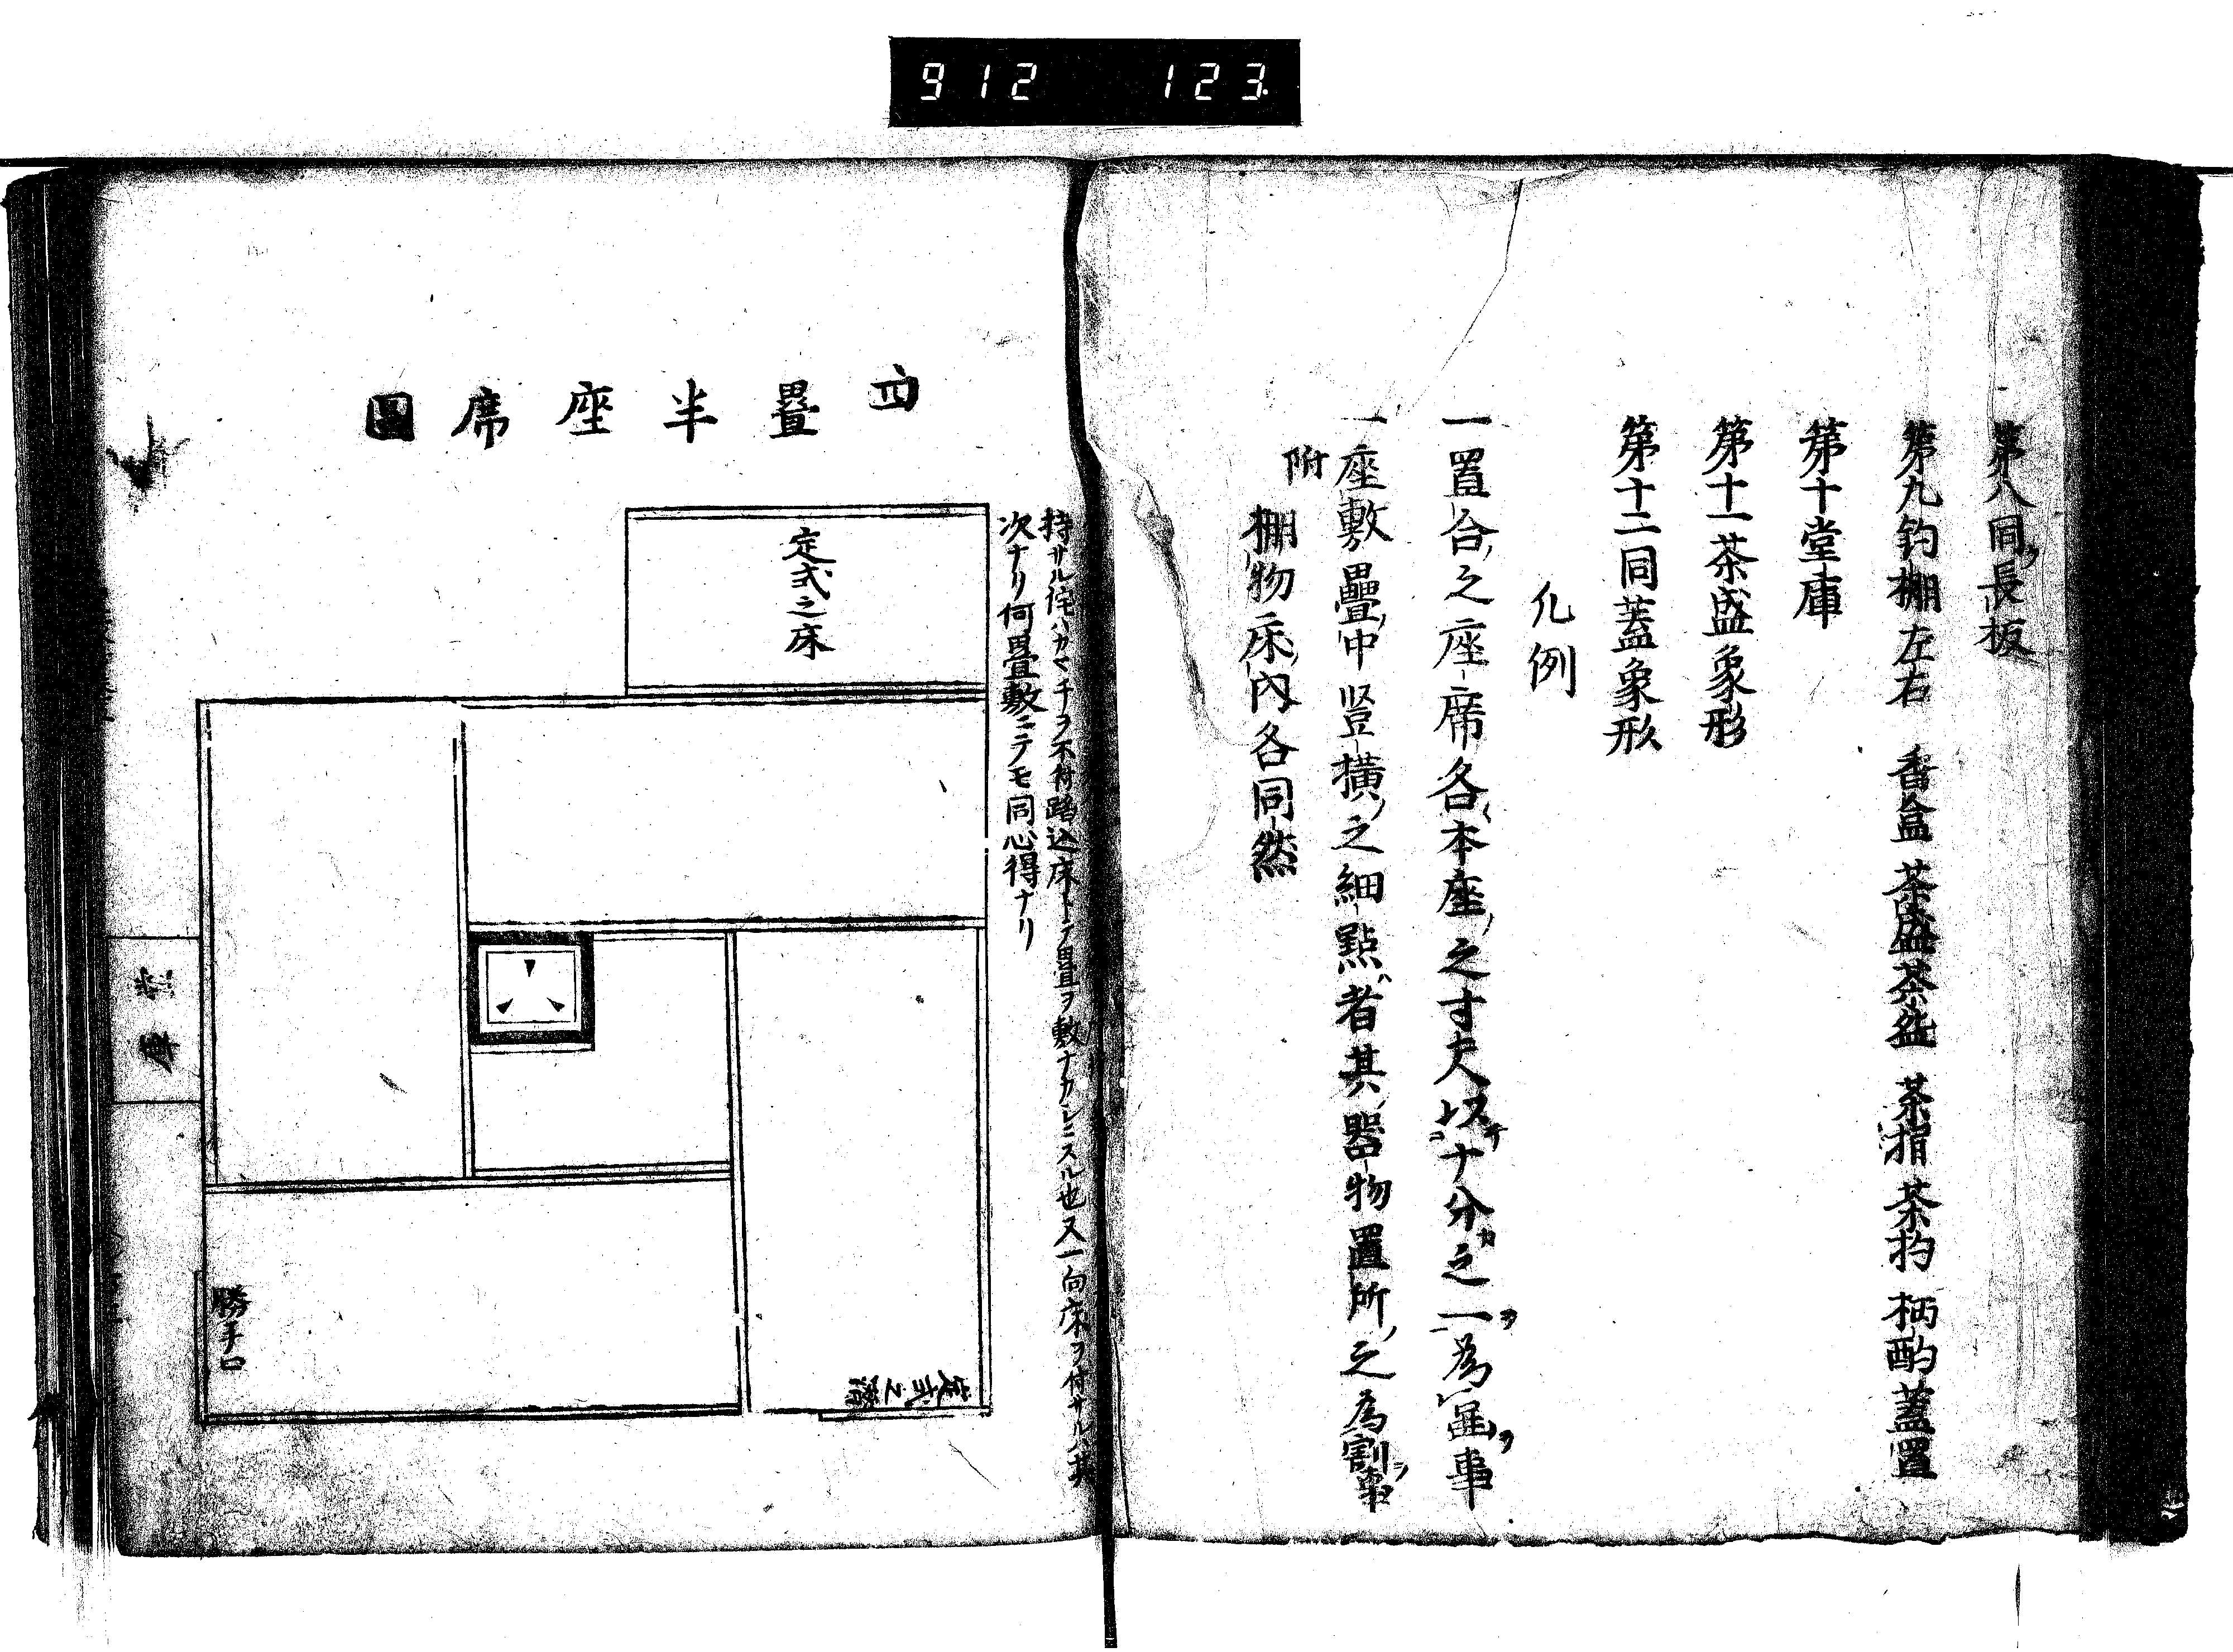 912 123
第八同ク長板
第九釣棚左右 香盒 茶盛茶盌 茶捐 茶杓 柄酌蓋置
第十堂庫
第十一茶盛象形
第十二同蓋象形
凡例
一置合ノ之座席各〱本座ノ之寸尺以テナ分カ之一ヲ為事
一座敷疊ノ中竪横ノ之細點ハ者其ノ器物置所ノ之為割事
附 棚物床ノ內各同然
四疊半座席圖
持サル侘ハカマチヲ不付踏込床トテ畳ヲ敷ナカシニスル也又一向床ヲ付サルハ其
次ナリ何畳敷ニテモ同心得ナリ
定式之床
堂庫
勝手口
定式之